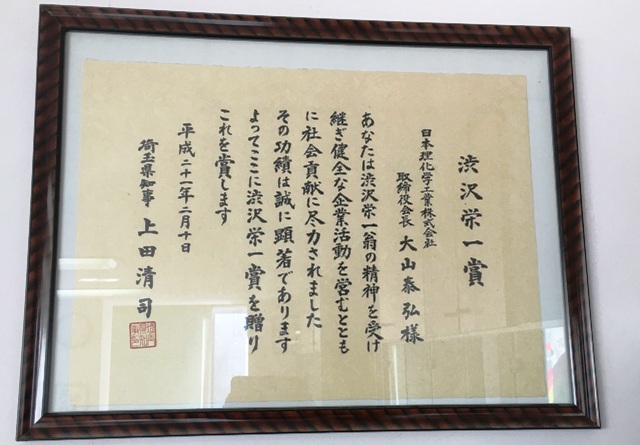 渋沢栄一賞
日本理化学工業株式会社
取締役会長 大山泰弘様
あなたは渋沢栄一翁の精神を受け
継ぎ健全な企業活動を営むととも
に社会貢献に尽力されました
その功績は誠に顕著であります
よってここに渋沢栄一賞を贈り
これを賞します
平成二十一年二月十日
埼玉県知事 上田清司